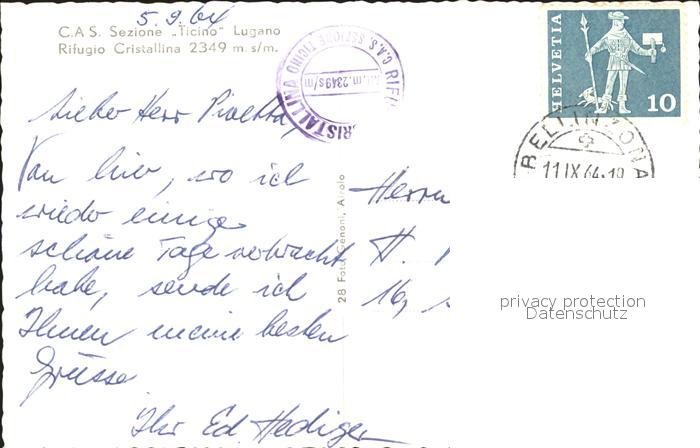 5.9.64
C.A.S. Sezione „Ticino" Lugano
Rifugio Cristallina 2349 m. s/m.
CRISTALLINA C.A.S. SEZIONE TICINO RIFU
m. 2349 s/m
HELVETIA
10
BELLINZONA
11.IX.64-18
Lieber Herr
Von hier, wo ich
wieder einige
schöne Tage verbracht
habe, sende ich
Ihnen meine besten
Grüsse
Ihr Ed Hediger
28 Foto Genoni, Airolo
Herrn
H.
16,
privacy protection
Datenschutz